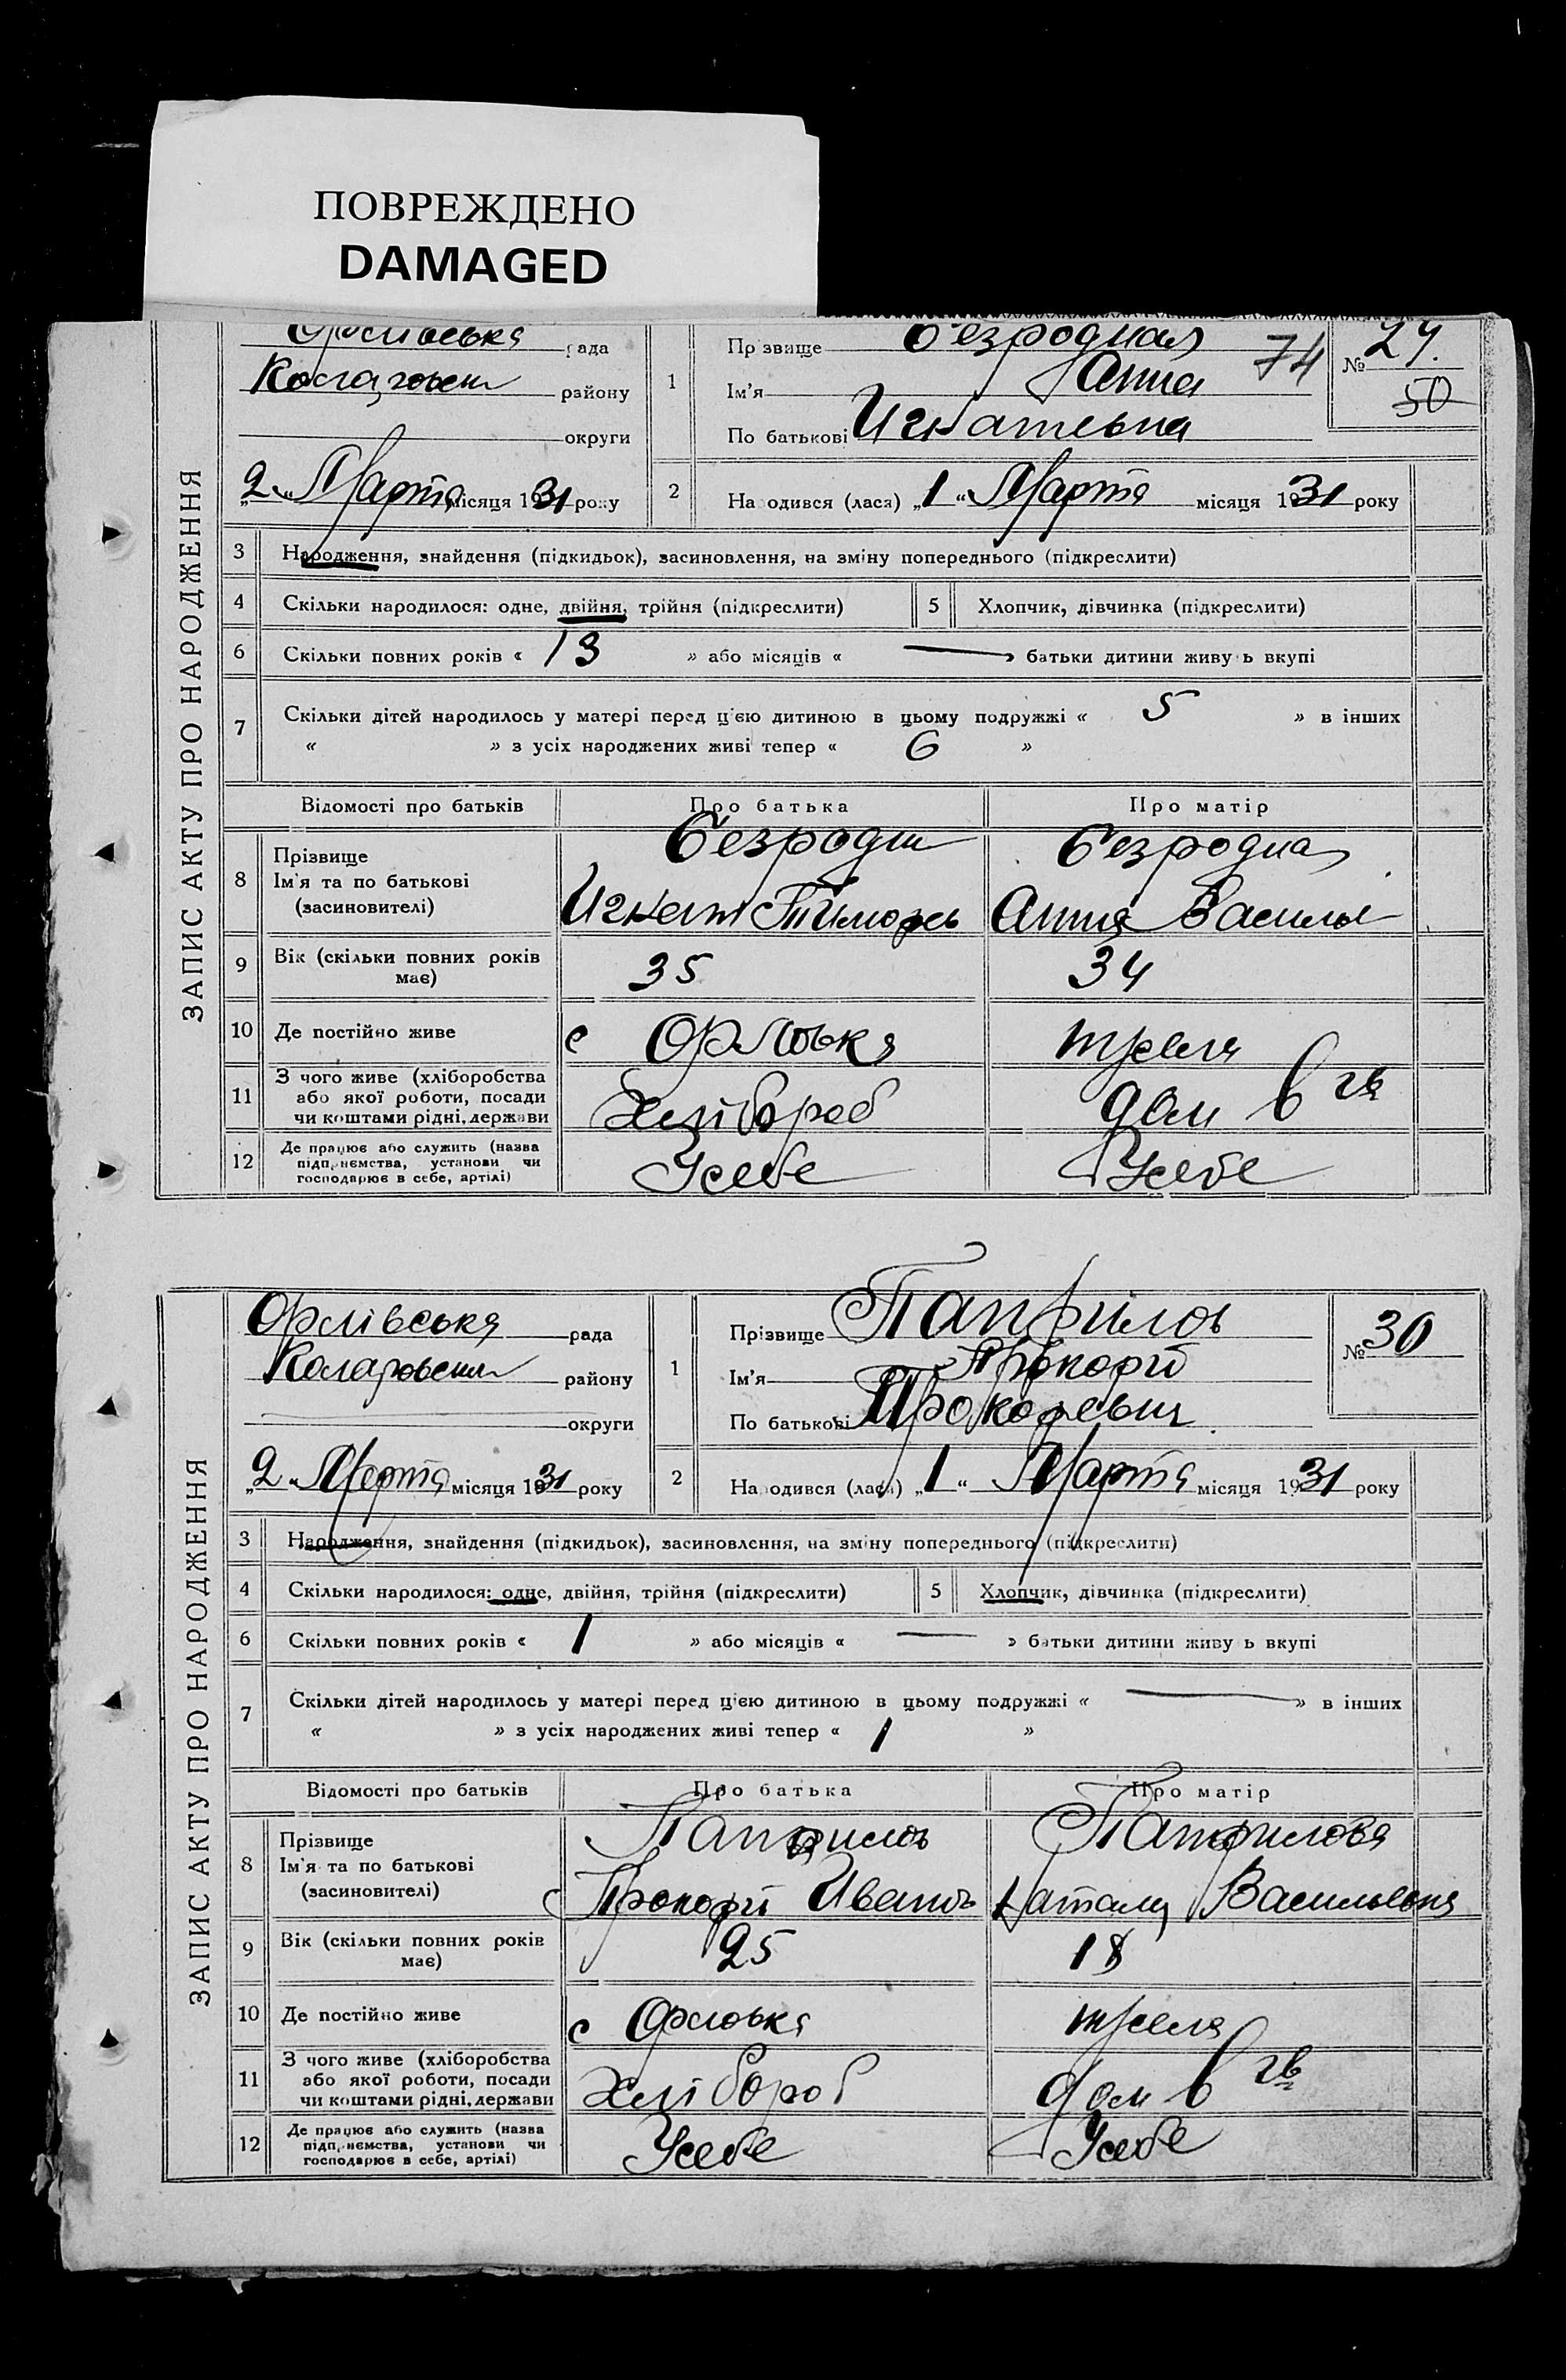 ПОВРЕЖДЕНО
DAMAGED
ЗАПИС АКТУ ПРО НАРОДЖЕННЯ
рада
района
округи
2 Марта місяця 1931 року
1
Прізвище Безродная
Ім'я Анна
По батькові Игнатевна
74
№ 29.
50
2
Народився (лася) „1“ Марта місяця 1931 року
3 Народження, знайдення (підкидьок), засиновлення, на зміну попереднього (підкреслити)
4 Скільки народилося: одне, двійня, трійня (підкреслити)
5 Хлопчик, дівчинка (підкреслити)
6 Скільки повних років « 13 » або місяців « — » батьки дитини живуть вкупі
7 Скільки дітей народилось у матері перед цією дитиною в цьому подружжі « 5 » в інших
« » з усіх народжених живі тепер « 6 »
Відомості про батьків Про батька Про матір
8 Прізвище
Ім'я та по батькові
(засиновителі)
Безродни
Игнат Тимофев
Безродна
Анна Василье
9 Вік (скільки повних років
має)
35 34
10 Де постійно живе с Орловка
11 З чого живе (хліборобства
або якої роботи, посади
чи коштами рідні, держави
Хлібороб дом
12 Де працює або служить (назва
підприємства, установи чи
господарює в себе, артілі)
Усебе Усебе
ЗАПИС АКТУ ПРО НАРОДЖЕННЯ
Орлівська рада
району
округи
„2“ Марта місяця 1931 року
1
Прізвище Панфилов
Ім'я Прокофій
По батькові Прокофевич
№ 30
2
Народився (лася) „1“ Марта місяця 1931 року
3 Народження, знайдення (підкидьок), засиновлення, на зміну попереднього (підкреслити)
4 Скільки народилося: одне, двійня, трійня (підкреслити)
5 Хлопчик, дівчинка (підкреслити)
6 Скільки повних років « 1 » або місяців « — » батьки дитини живуть вкупі
7 Скільки дітей народилось у матері перед цією дитиною в цьому подружжі « — » в інших
« » з усіх народжених живі тепер « 1 »
Відомості про батьків Про батька Про матір
8 Прізвище
Ім'я та по батькові
(засиновителі)
Панфилов
Прокофій Иванов
Панфилова
Васильевна
9 Вік (скільки повних років
має)
25 18
10 Де постійно живе с Орловка
11 З чого живе (хліборобства
або якої роботи, посади
чи коштами рідні, держави
Хлібороб дом
12 Де працює або служить (назва
підприємства, установи чи
господарює в себе, артілі)
Усебе Усебе